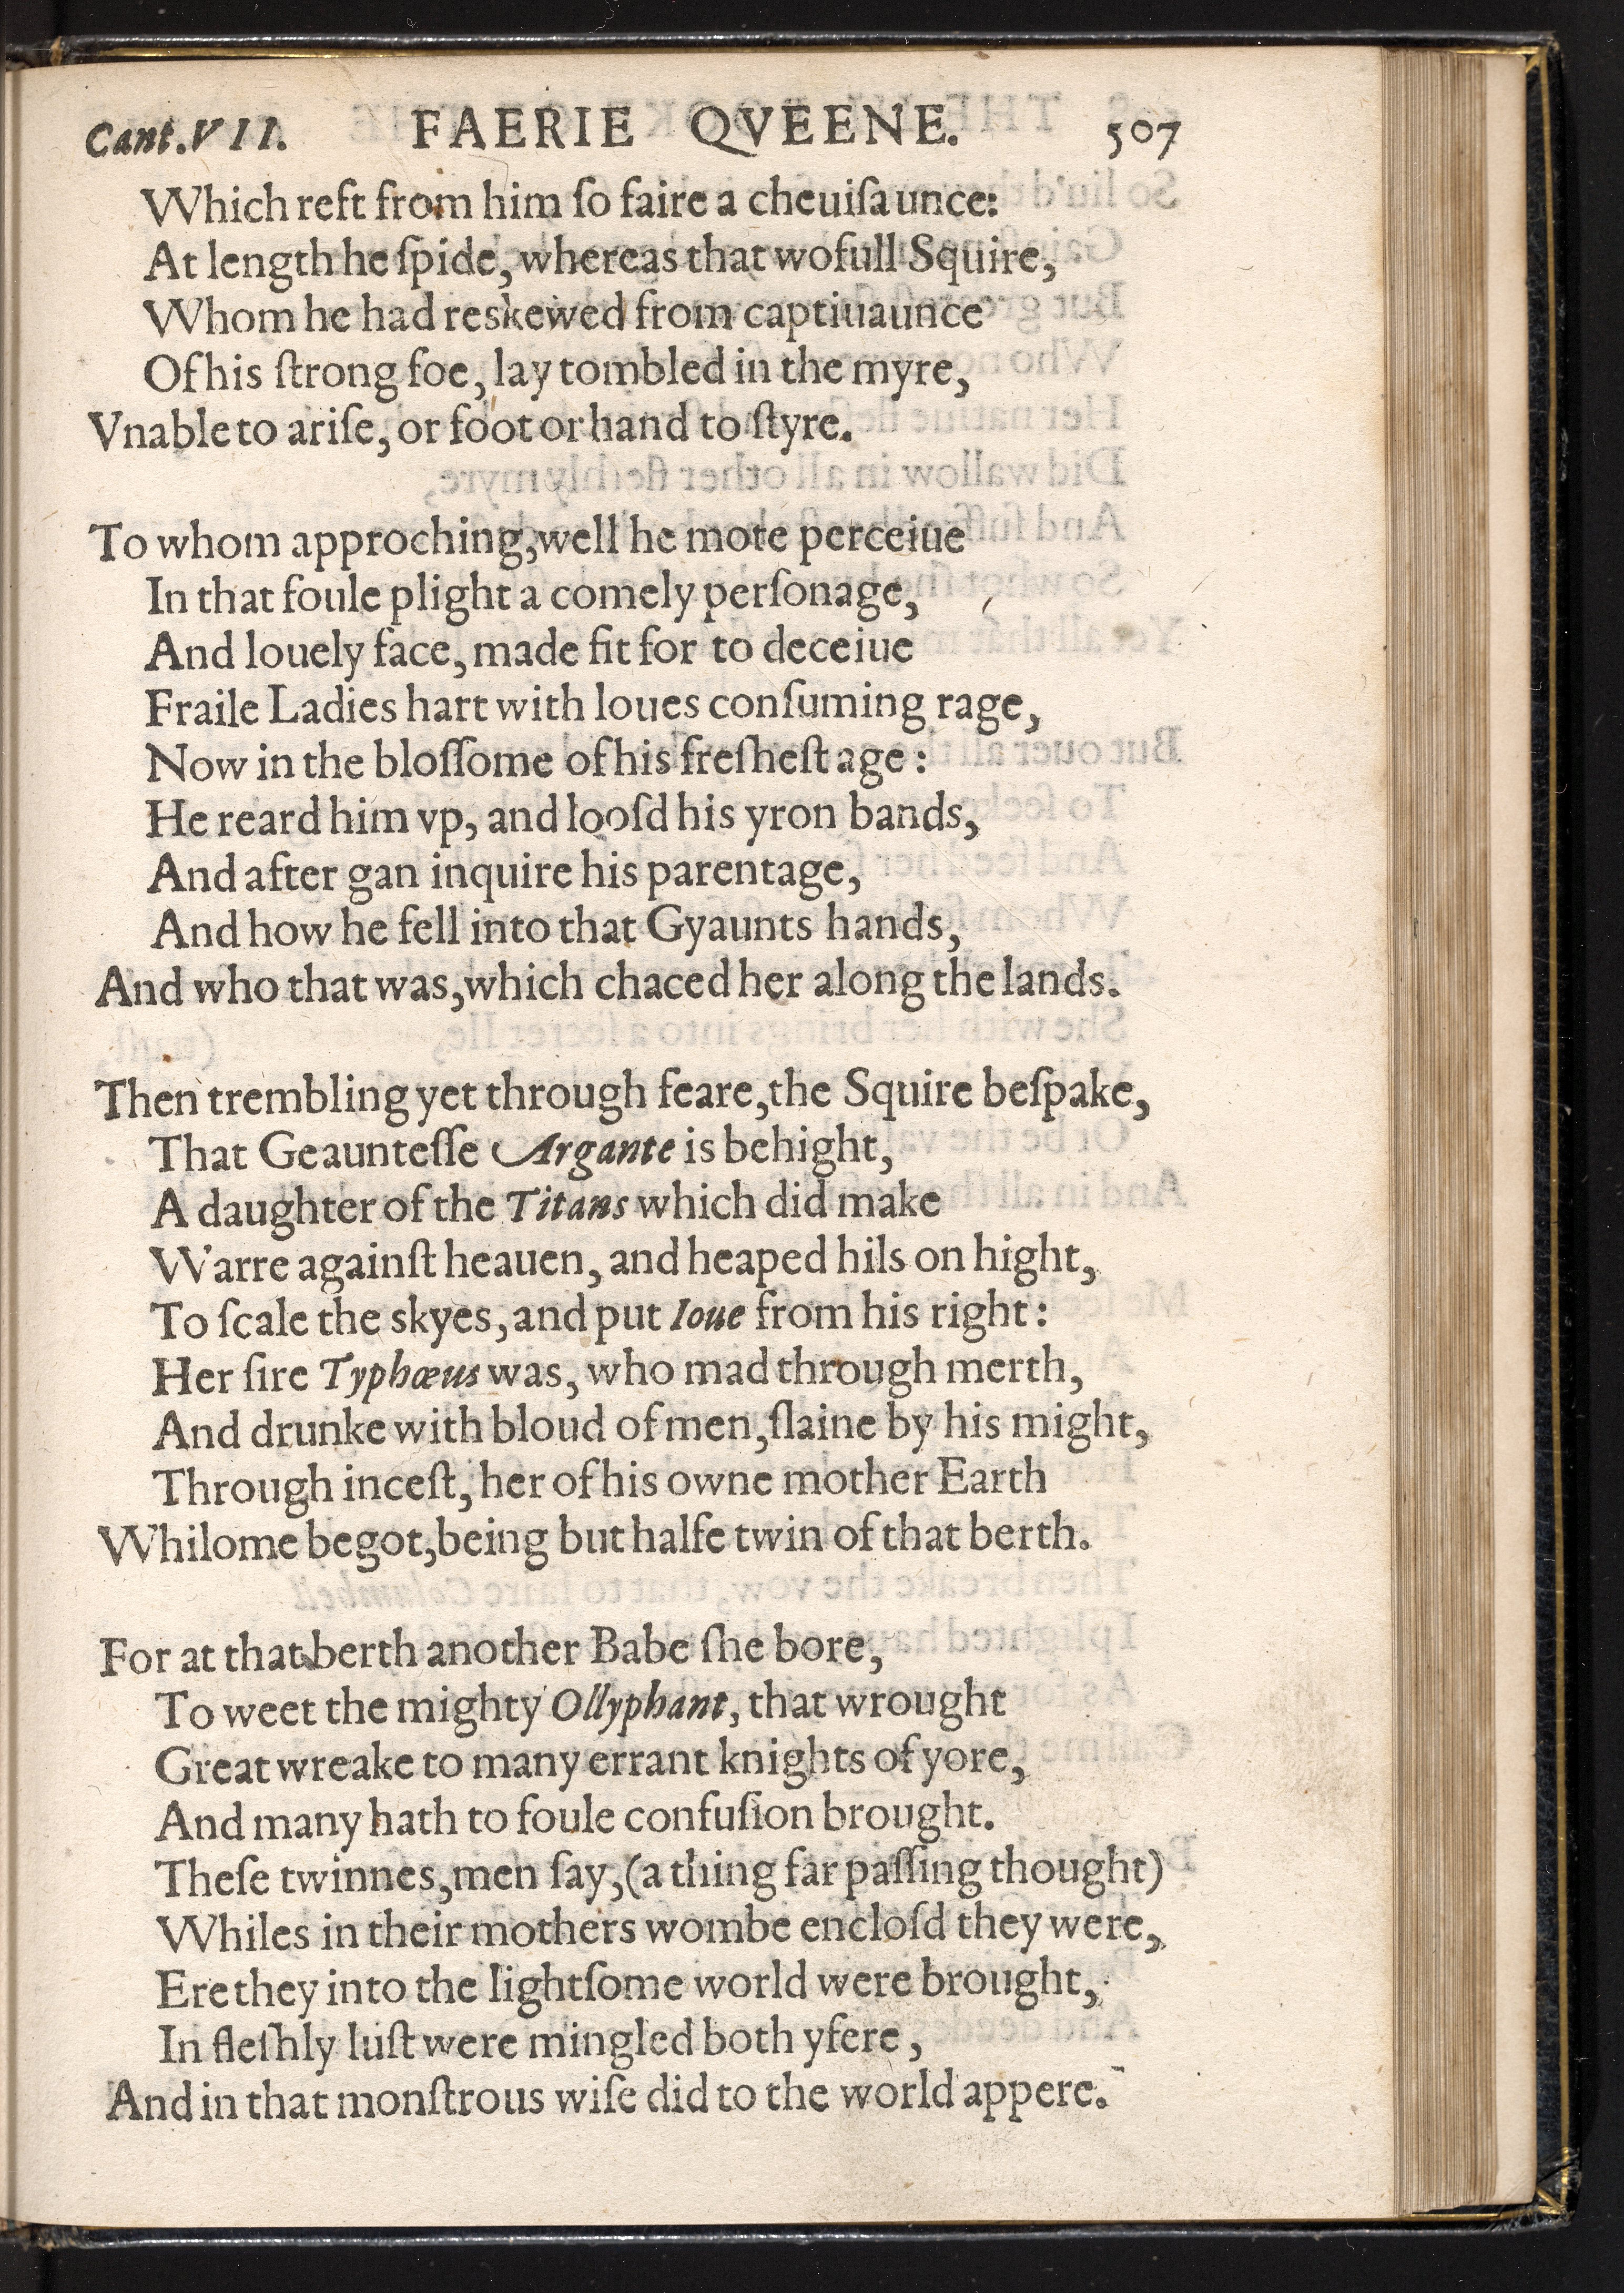 Cant.VII. FAERIE QVEENE. 507
Which reft from him ſo faire a cheuiſaunce:
At length he ſpide, whereas that wofull Squire,
Whom he had reskewed from captiuaunce
Of his ſtrong foe, lay tombled in the myre,
Vnable to ariſe, or foot or hand to ſtyre.
To whom approching, well he mote perceiue
In that foule plight a comely perſonage,
And louely face, made fit for to deceiue
Fraile Ladies hart with loues conſuming rage,
Now in the bloſſome of his freſheſt age:
He reard him vp, and looſd his yron bands,
And after gan inquire his parentage,
And how he fell into that Gyaunts hands,
And who that was, which chaced her along the lands.
Then trembling yet through feare, the Squire beſpake,
That Geaunteſſe Argante is behight,
A daughter of the Titans which did make
Warre againſt heauen, and heaped hils on hight,
To ſcale the skyes, and put Ioue from his right:
Her ſire Typhœus was, who mad through merth,
And drunke with bloud of men, ſlaine by his might,
Through inceſt, her of his owne mother Earth
Whilome begot, being but halfe twin of that berth.
For at that berth another Babe ſhe bore,
To weet the mighty Ollyphant, that wrought
Great wreake to many errant knights of yore,
And many hath to foule confuſion brought.
Theſe twinnes, men ſay, (a thing far paſſing thought)
Whiles in their mothers wombe encloſd they were,
Ere they into the lightſome world were brought,
In fleſhly luſt were mingled both yfere,
And in that monſtrous wiſe did to the world appere.